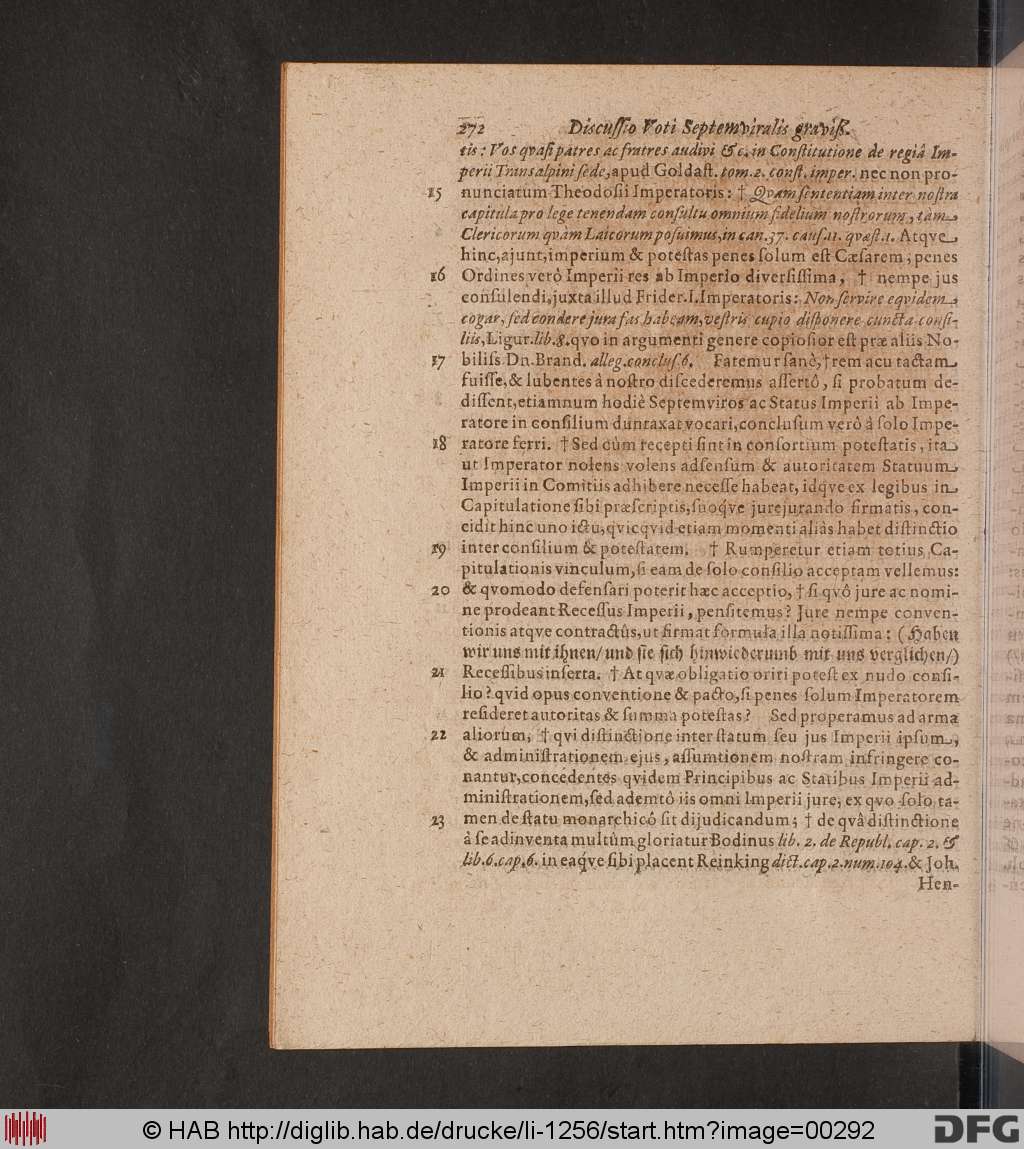 272 Discuſſio Voti Septemviralis graviß.
tis: Vos qvaſi patres ac fratres audivi &c. in Conſtitutione de regiâ Im-
perii Transalpini ſede, apud Goldaſt. tom. 2. conſt. imper. nec non pro-
15 nunciatum Theodoſii Imperatoris: † Qvam ſententiam inter noſtra
capitula pro lege tenendam conſultu omnium fidelium noſtrorum, tàm
Clericorum qvàm Laicorum poſuimus, in can. 37. cauſ. 11. qvæſt. 1. Atqve
hinc, ajunt, imperium & poteſtas penes ſolum eſt Cæſarem; penes
16 Ordines verô Imperii res ab Imperio diverſiſſima, † nempe jus
conſulendi, juxta illud Frider. I. Imperatoris: Non ſervire eqvidem
cogar, ſed condere jura fas habeam, veſtris cupio diſponere cuncta conſi-
liis, Ligur. lib. 8. qvo in argumenti genere copioſior eſt præ aliis No-
17 biliſs Dn. Brand. alleg. concluſ. 6. Fatemur ſanè, † rem acu tactam
fuiſſe, & lubentes à noſtro diſcederemus aſſertô, ſi probatum de-
diſſent, etiamnum hodiè Septemviros ac Status Imperii ab Impe-
ratore in conſilium duntaxat vocari, concluſum verô à ſolo Impe-
18 ratore ferri. † Sed cùm recepti ſint in conſortium poteſtatis, ita
ut Imperator nolens volens adſenſum & autoritatem Statuum
Imperii in Comitiis adhibere neceſſe habeat, idqve ex legibus in
Capitulatione ſibi præſcriptis, ſuoq́ve jurejurando firmatis, con-
cidit hinc uno ictu, qvicqvid etiam momenti aliàs habet diſtinctio
19 inter conſilium & poteſtatem. † Rumperetur etiam totius Ca-
pitulationis vinculum, ſi eam de ſolo conſilio acceptam vellemus:
20 & qvomodo defenſari poterit hæc acceptio, † ſi qvô jure ac nomi-
ne prodeant Receſſus Imperii, penſitemus? Jure nempe conven-
tionis atqve contractûs, ut firmat formula illa notiſſima: (Haben
wir uns mit ihnen/ und ſie ſich hinwiederumb mit uns verglichen/)
21 Receſſibus inſerta. † At qvæ obligatio oriri poteſt ex nudo conſi-
lio? qvid opus conventione & pacto, ſi penes ſolum Imperatorem
reſideret autoritas & ſumma poteſtas? Sed properamus ad arma
22 aliorum, † qvi diſtinctione inter ſtatum ſeu jus Imperii ipſum,
& adminiſtrationem ejus, aſſumtionem noſtram infringere co-
nantur, concedentes qvidem Principibus ac Statibus Imperii ad-
miniſtrationem, ſed ademtô iis omni Imperii jure, ex qvo ſolo ta-
23 men de ſtatu monarchicô ſit dijudicandum; † de qvâ diſtinctione
à ſe adinventa multùm gloriatur Bodinus lib. 2. de Republ. cap. 2. &
lib. 6. cap. 6. in eaq́ve ſibi placent Reinking dict. cap. 2. num. 194. & Joh.
Hen-
© HAB http://diglib.hab.de/drucke/li-1256/start.htm?image=00292
DFG